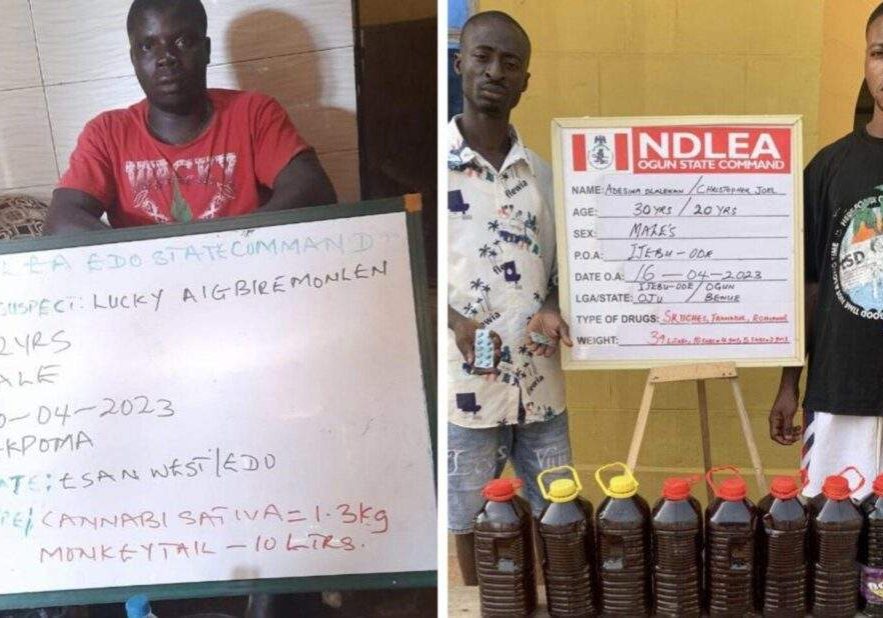 LEA EDO STATE COMMAND
SUSPECT: LUCKY AIGBIREMONLEN
2YRS
ALE
0-04-2023
KPOMA
ATE: ESAN WEST/EDO
PE/ CANNABI SATIVA = 1.3kg
MONKEYTAIL - 10 LTRS.
NDLEA
OGUN STATE COMMAND
NAME: ADESINA OLALEKAN / CHRISTOPHER JOEL
AGE: 30YRS / 20YRS
SEX: MALES
P.O.A: IJEBU-ODE
DATE O.A: 16-04-2023
IJEBU-ODE / OGUN
LGA/STATE: OJU / BENUE
TYPE OF DRUGS: SKUCHES,
WEIGHT: 39